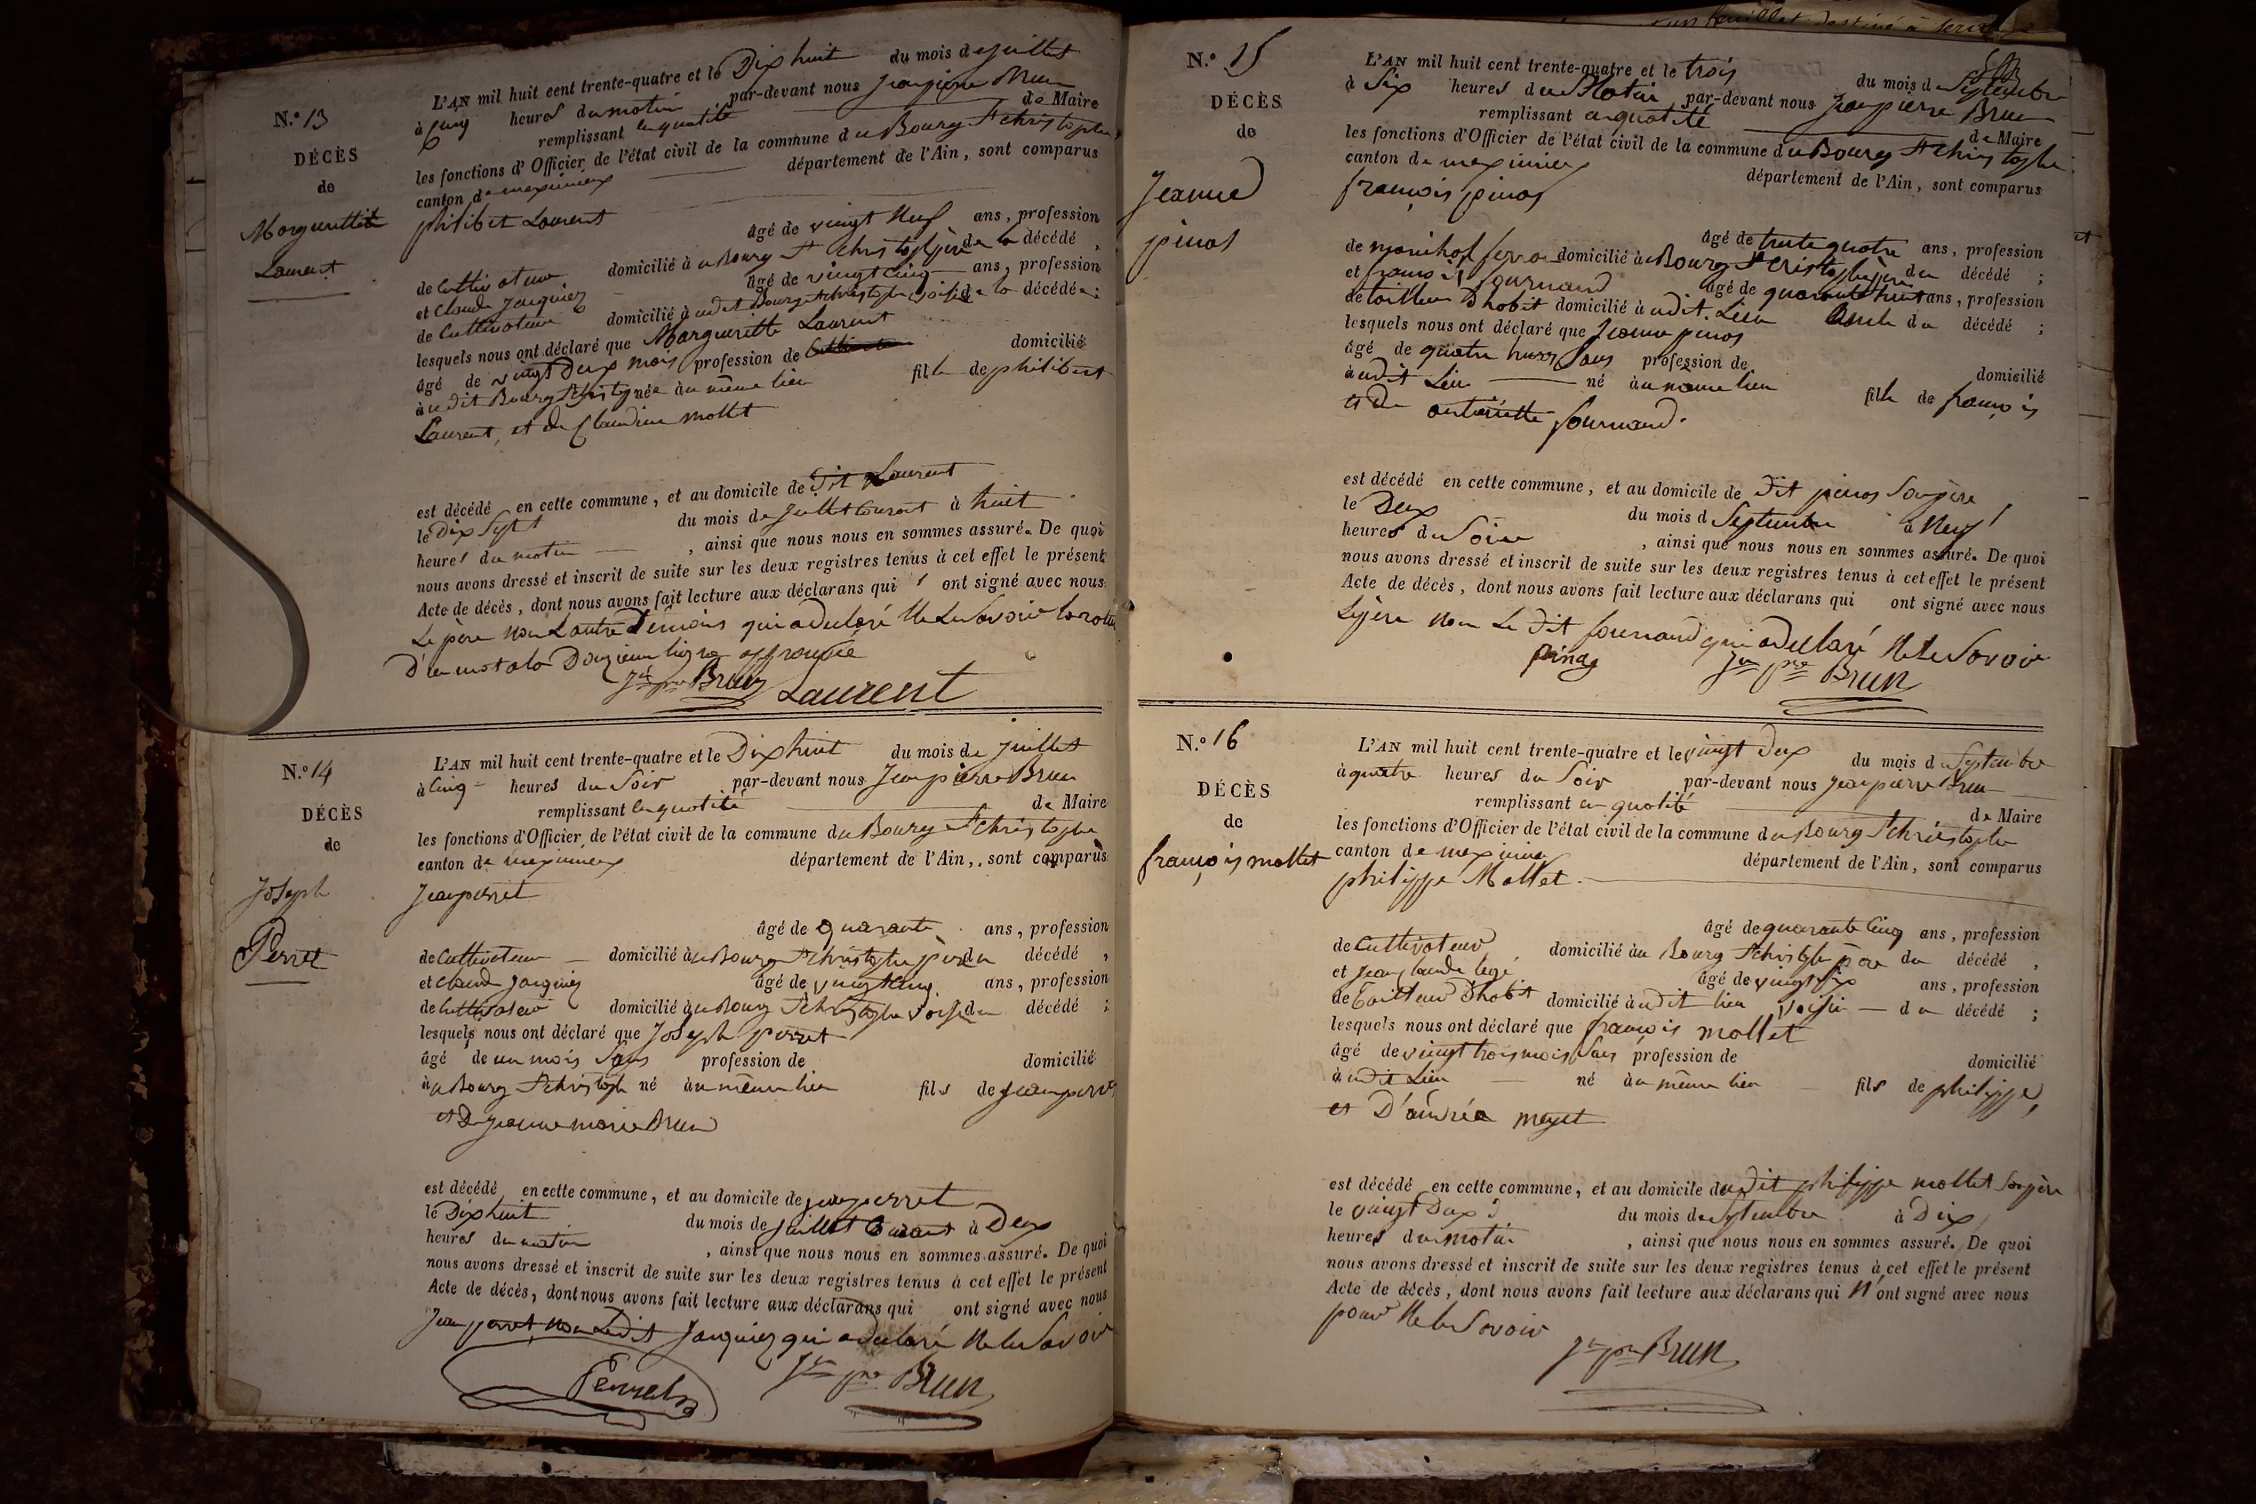 N.º 13
DÉCÈS
de
Margueritte
Laurent
L'AN mil huit cent trente-quatre et le Dix huit du mois de juillet
à cinq heures du matin par-devant nous jean pierre Brun
remplissant en qualité de Maire
les fonctions d'Officier de l'état civil de la commune du Bourg St christophe
canton de meximieux département de l'Ain, sont comparus
philibert Laurent
âgé de vingt neuf ans, profession
de cultivateur domicilié à u Bourg St christophe père de la décédé,
et claude jacquiez âgé de vingt cinq ans, profession
de cultivateur domicilié à udit Bourg St christophe voisin de la décédée;
lesquels nous ont déclaré que Margueritte Laurent
âgé de vingt Deux mois profession de domicilié
à udit Bourg St christophe née à u même lieu fille de philibert
Laurent, et de Claudine mollet
est décédé en cette commune, et au domicile de dit Laurent
le Dix Sept du mois de juillet Courant à huit
heures du matin, ainsi que nous nous en sommes assuré. De quoi
nous avons dressé et inscrit de suite sur les deux registres tenus à cet effet le présent
Acte de décès, dont nous avons fait lecture aux déclarans qui ont signé avec nous
Le père non L'autre Témoins qui a declaré Ne Le Savoir la rature
D'un mot a la Douzieme ligne approuvée
Jn pre Brun Laurent
N.º 14
DÉCÈS
de
Joseph
Perret
L'AN mil huit cent trente-quatre et le Dix huit du mois de juillet
à Cinq heures du Soir par-devant nous Jean pierre Brun
remplissant en qualité de Maire
les fonctions d'Officier de l'état civil de la commune du Bourg St christophe
canton de meximieux département de l'Ain, sont comparus
Jean perret
âgé de quarante ans, profession
de Cultivateur domicilié à u Bourg St christophe père du décédé,
et claude jacquiez âgé de vingt cinq ans, profession
de Cultivateur domicilié à u Bourg St christophe voisin du décédé;
lesquels nous ont déclaré que Joseph perret
âgé de un mois Sans profession de domicilié
à u Bourg St christophe né à u même lieu fils de Jean perret
et De jeanne marie Brun
est décédé en cette commune, et au domicile de jean perret
le Dix huit du mois de juillet Courant à Deux
heures du matin, ainsi que nous nous en sommes assuré. De quoi
nous avons dressé et inscrit de suite sur les deux registres tenus à cet effet le présent
Acte de décès, dont nous avons fait lecture aux déclarans qui ont signé avec nous
Jean perret, non Ledit Jacquiez qui a declaré Ne le Savoir
Perret Jn pre Brun
N.º 15
DÉCÈS
de
Jeanne
pinos
L'AN mil huit cent trente-quatre et le trois du mois de Septembre
à Six heures du Matin par-devant nous Jean pierre Brun
remplissant en qualité de Maire
les fonctions d'Officier de l'état civil de la commune du Bourg St christophe
canton de meximieux département de l'Ain, sont comparus
françois pinos
âgé de trente quatre ans, profession
de marichal ferran domicilié à u Bourg St cristophe père du décédé;
et françois fournand âgé de quarante huit ans, profession
de tailleur D'habit domicilié à udit Lieu oncle du décédé;
lesquels nous ont déclaré que Jeanne pinos
âgé de quatre heures Sans profession de domicilié
à udit Lieu né à u même lieu fille de françois
et De antoinette fournand.
est décédé en cette commune, et au domicile de dit pinos Son père
le Deux du mois d Septembre à Neuf
heures du Soir, ainsi que nous nous en sommes assuré. De quoi
nous avons dressé et inscrit de suite sur les deux registres tenus à cet effet le présent
Acte de décès, dont nous avons fait lecture aux déclarans qui ont signé avec nous
Le père non Le dit fournand qui a declaré Ne Le Savoir
pinos Jn pre Brun
N.º 16
DÉCÈS
de
françois mollet
L'AN mil huit cent trente-quatre et le vingt deux du mois de Septembre
à quatre heures du Soir par-devant nous jean pierre Brun
remplissant en qualité de Maire
les fonctions d'Officier de l'état civil de la commune du Bourg St christophe
canton de meximieux département de l'Ain, sont comparus
philippe Mollet
âgé de quarante Cinq ans, profession
de Cultivateur domicilié à u Bourg St christophe père du décédé,
et jean claude legé âgé de vingt six ans, profession
de Tailleur D'habit domicilié à udit lieu voisin du décédé;
lesquels nous ont déclaré que françois mollet
âgé de vingt trois mois Sans profession de domicilié
à udit Lieu né à u même lieu fils de philippe,
et D'andréa meyet
est décédé en cette commune, et au domicile du dit philippe mollet Son père
le vingt Deux du mois de Septembre à Dix
heures du matin, ainsi que nous nous en sommes assuré. De quoi
nous avons dressé et inscrit de suite sur les deux registres tenus à cet effet le présent
Acte de décès, dont nous avons fait lecture aux déclarans qui N'ont signé avec nous
pour Ne le Savoir
Jn pre Brun